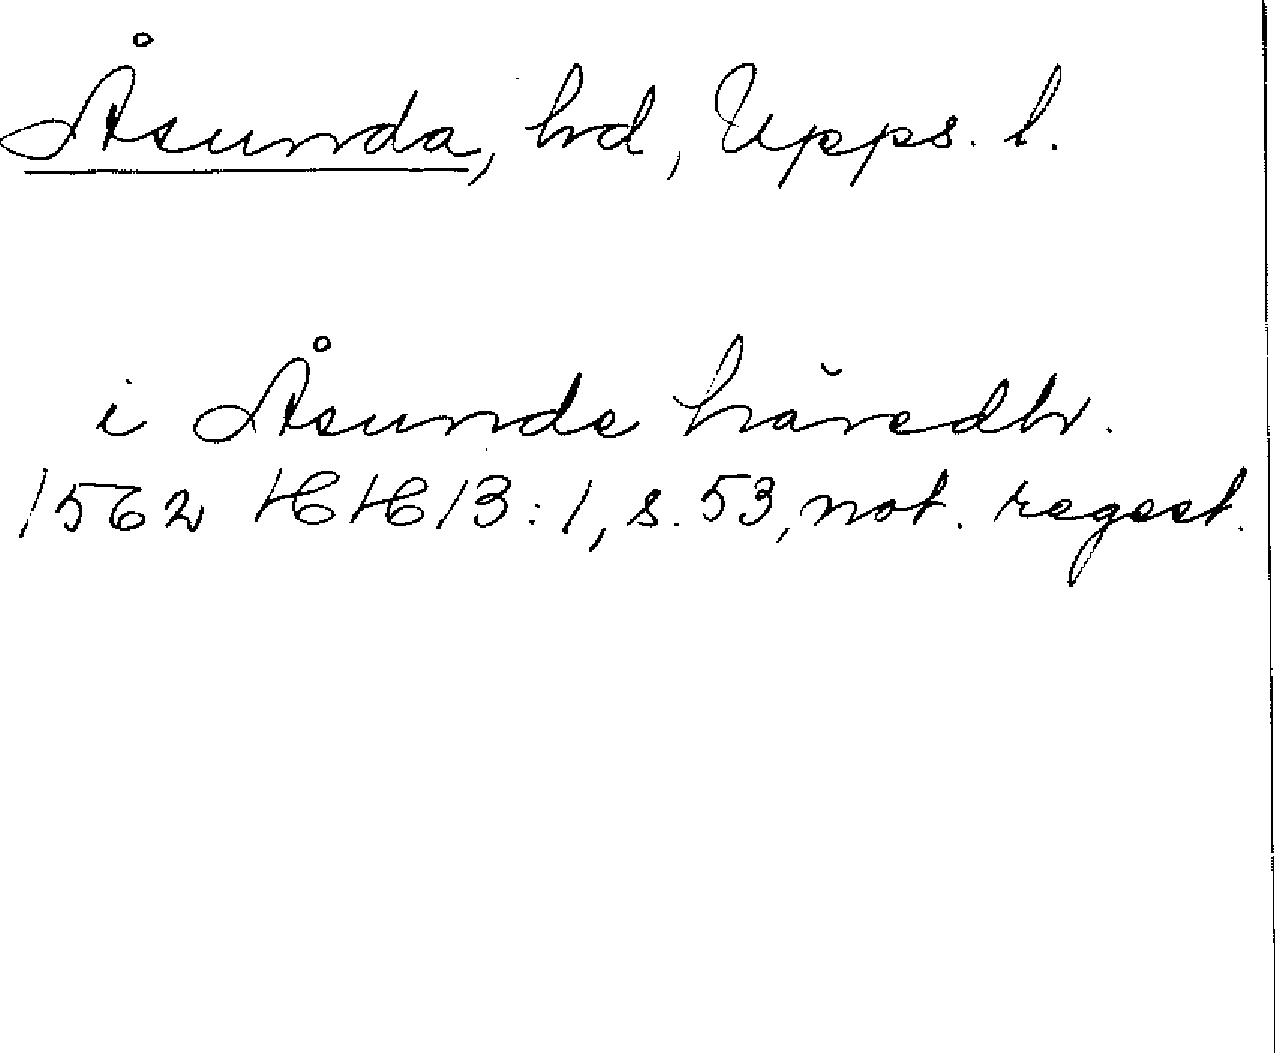 Åsunda, hd, Upps. l.
i Åsunde häredh.
1562 HH 13:1, s. 53, not. regest.